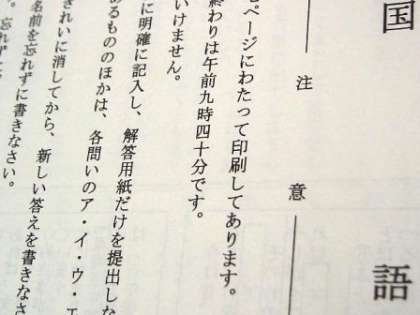 国語
注意
ページにわたって印刷してあります。
終わりは午前九時四十分です。
いけません。
に明確に記入し、解答用紙だけを提出しな
あるもののほかは、各問いのア・イ・ウ・エ
きれいに消してから、新しい答えを書きなさ
名前を忘れずに書きなさい。